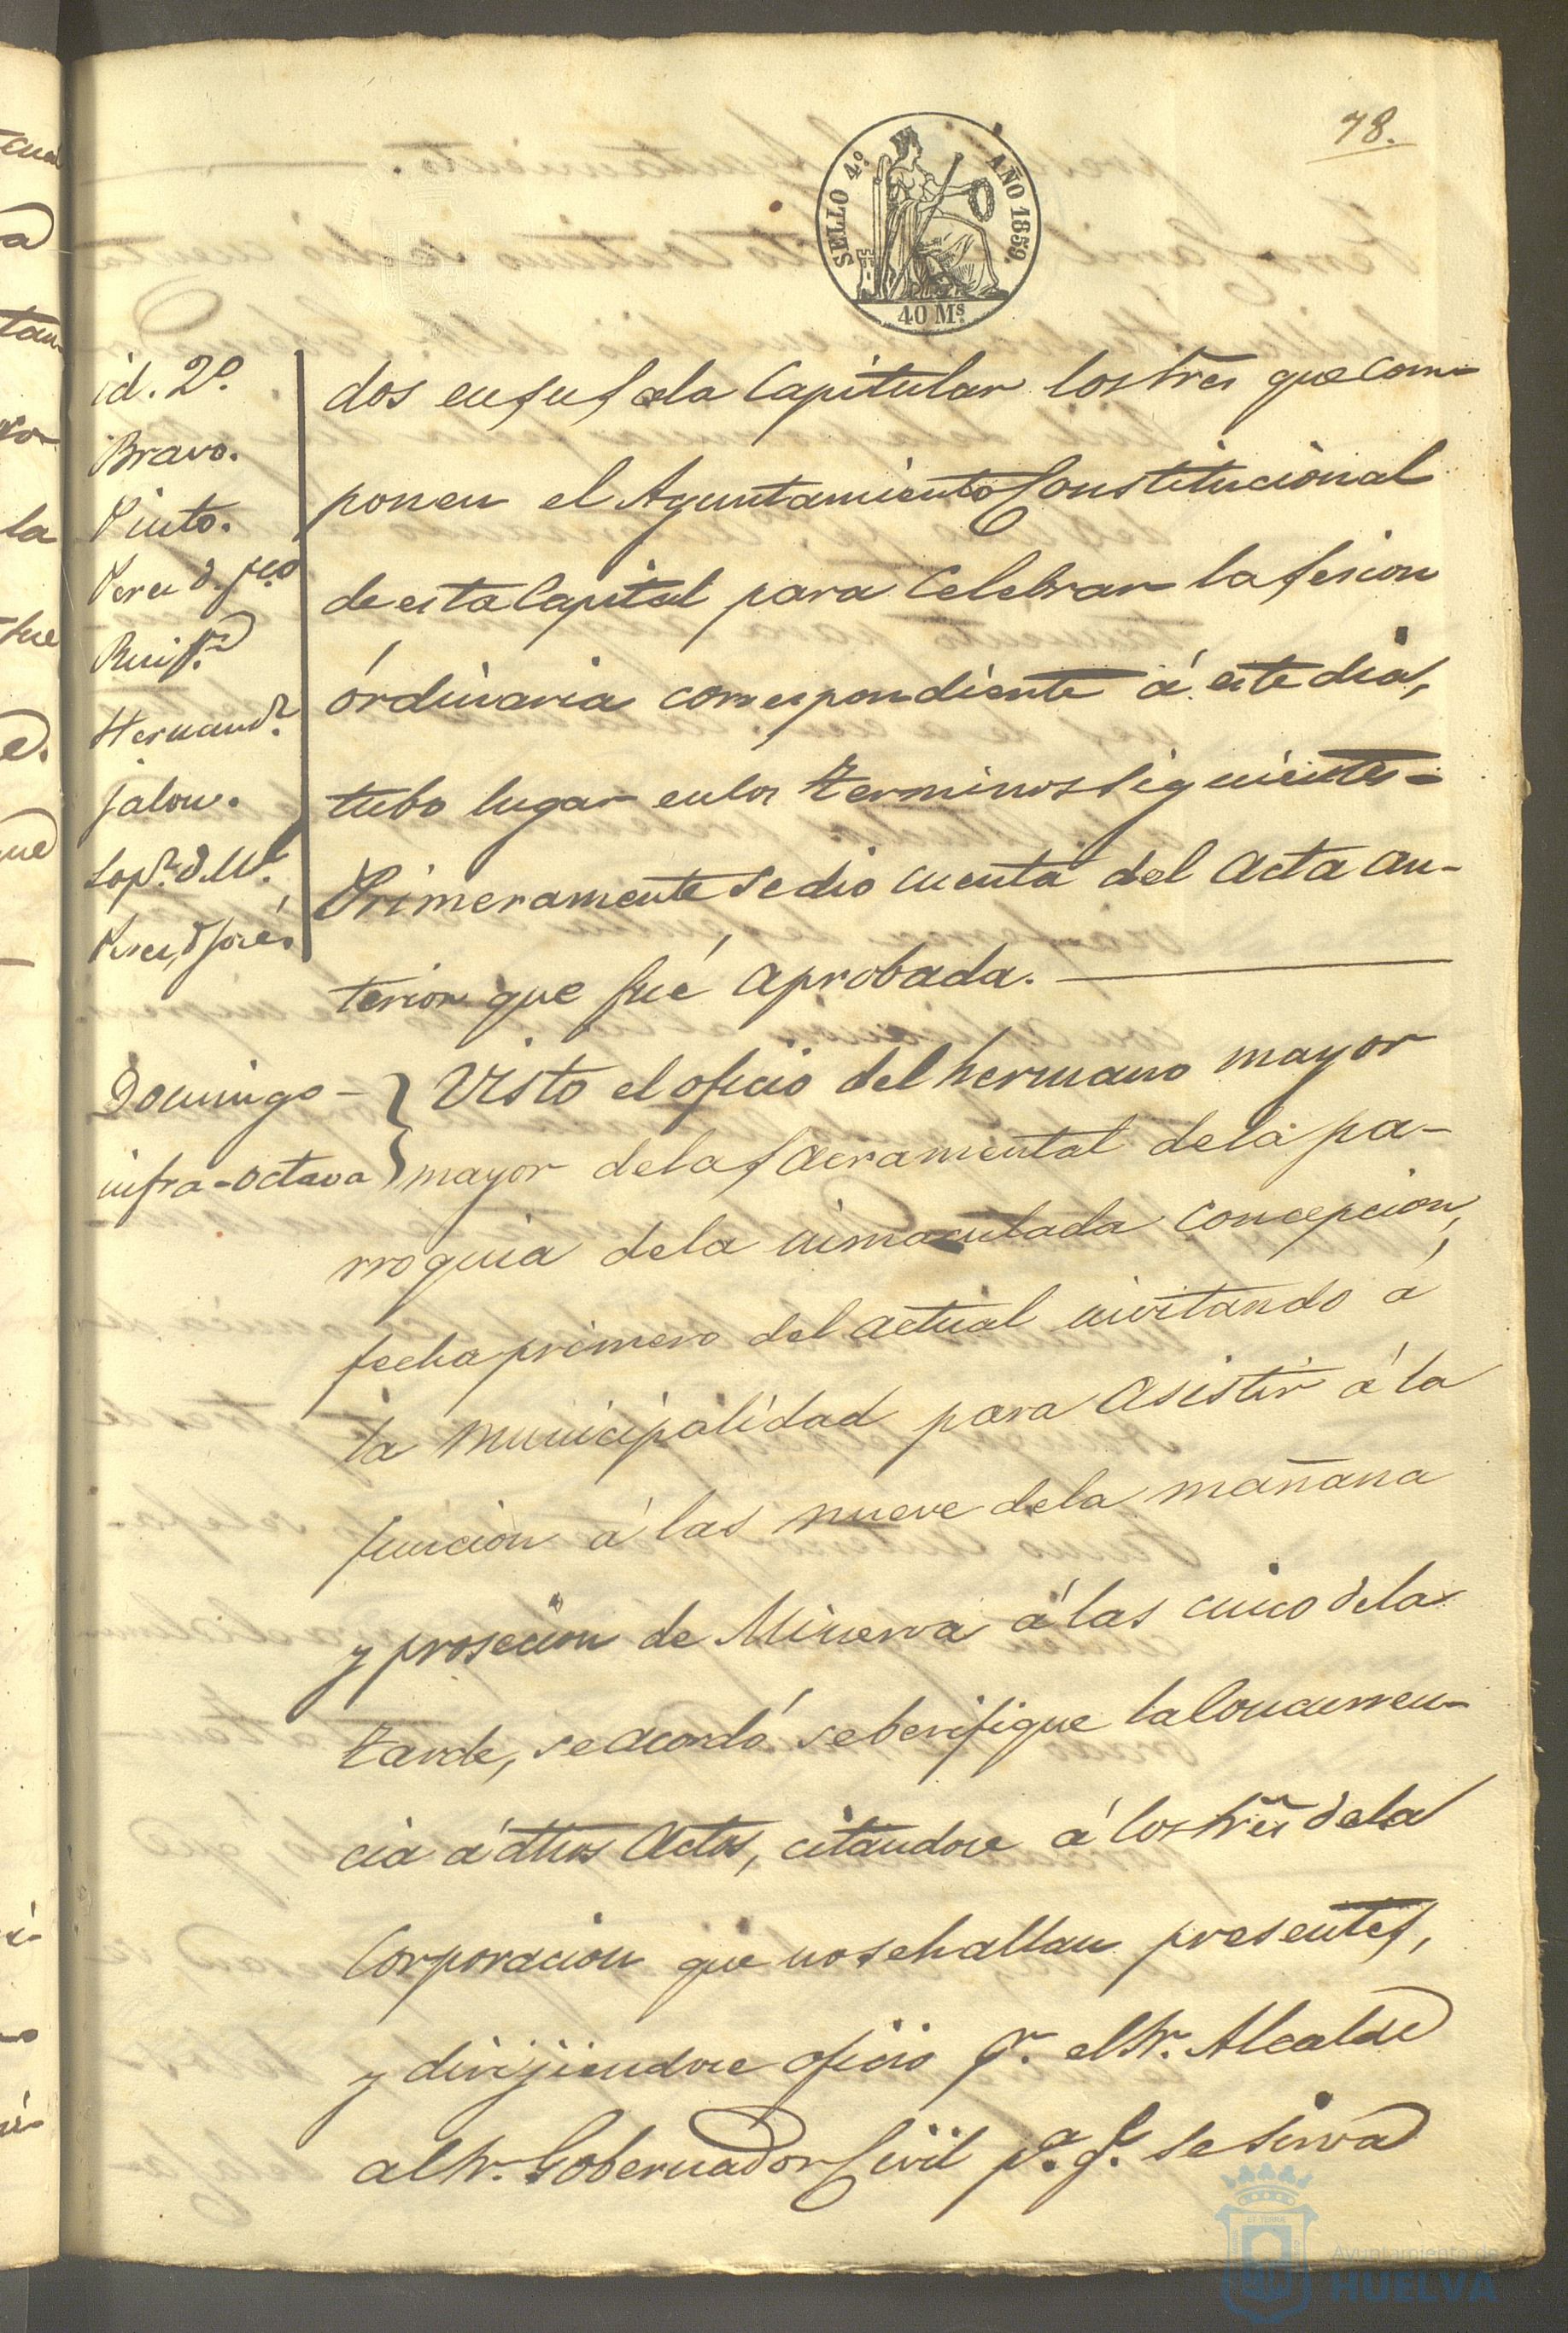 78.
SELLO 4º. AÑO 1859.
40 Ms.
id. 2º.
Bravo.
Pinto.
Perez d. Fco
Ruiz
Hernandz.
jalon.
Lopz. d. Ml.
Perez, d José.
dos en su sala Capitular los Sres que com-
ponen el Ayuntamiento Constitucional
de esta Capital para Celebrar la sesion
órdinaria correspondiente á este dia,
tubo lugar en los terminos siguientes=
Primeramente se dio cuenta del Acta an-
terior que fué aprobada.
Domingo -
infra-octava
Visto el oficio del hermano mayor
mayor de la sacramental de la pa-
rroquia de la inmaculada Concepcion,
fecha primero del actual invitando á
la municipalidad para Asistir á la
funcion á las nueve de la mañana
y prosecion de Minerva á las cinco de la
tarde, se acordó se berifique la Concurren-
cia á dhos Actos, citandose á los Sres de la
Corporacion que no se hallan presentes,
y dirijiendose oficio pr. el Sr. Alcalde
al Sr. Gobernador Civil pa. q. se sirva
Ayuntamiento de
HUELVA